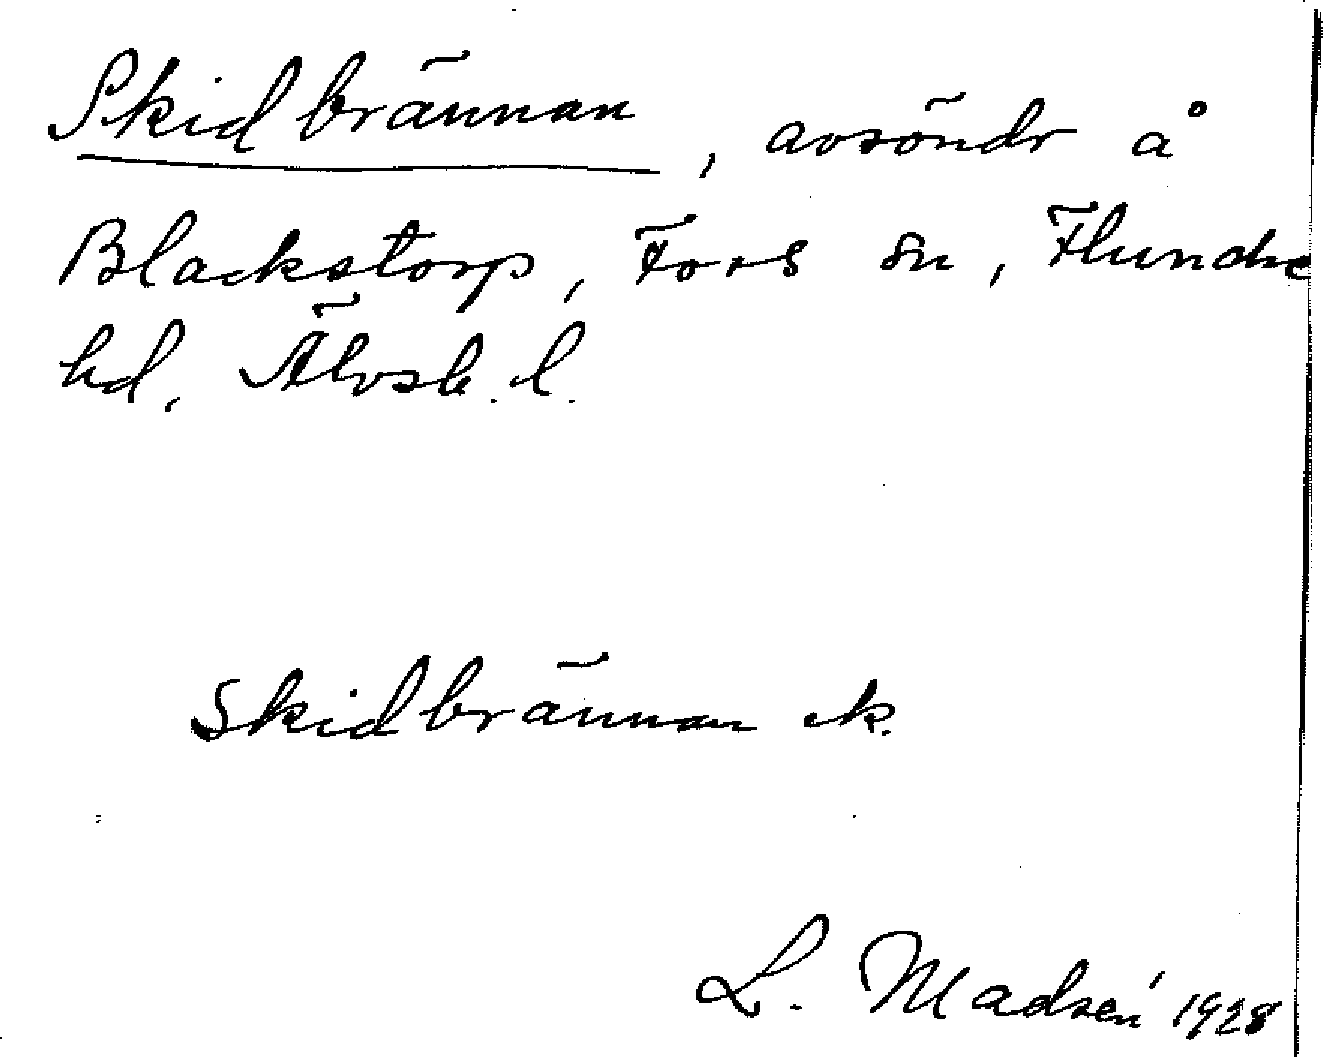 Skidbrännan, avsöndr å
Blackstorp, Fors sn, Flundre
hd, Älvsb. l.
Skidbrännan ek.
L. Madsén 1928